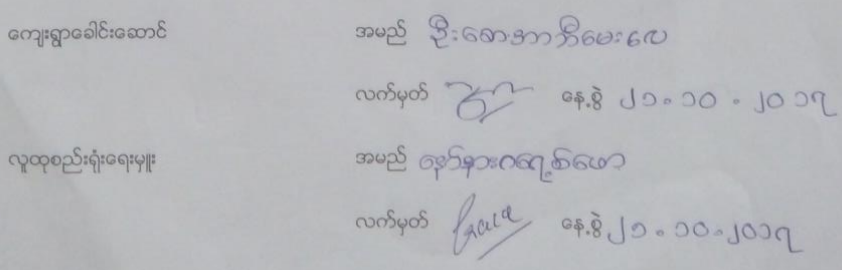 ကျေးရွာခေါင်းဆောင် အမည် ဦးစောအာဘီမေးလေ
လက်မှတ် နေ့စွဲ ၂၁.၁၀.၂၀၁၇
လူထုစည်းရုံးရေးမှူး အမည် နော်နားဂရေ့စ်ဖော
လက်မှတ် Grace နေ့စွဲ ၂၁.၁၀.၂၀၁၇